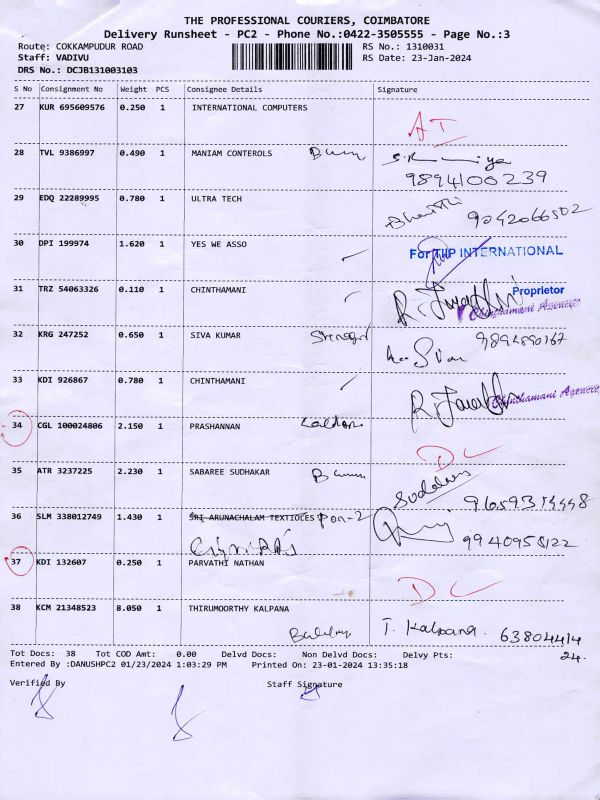 THE PROFESSIONAL COURIERS, COIMBATORE
Delivery Runsheet - PC2 - Phone No.:0422-3505555 - Page No.:3
Route: COKKAMPUDUR ROAD RS No.: 1310031
Staff: VADIVU RS Date: 23-Jan-2024
DRS No.: DCJB131003103
S No Consignment No Weight PCS Consignee Details Signature
27 KUR 695609576 0.250 1 INTERNATIONAL COMPUTERS
AT
28 TVL 9386997 0.490 1 MANIAM CONTEROLS
9894100239
29 EDQ 22289995 0.780 1 ULTRA TECH
Bharathi 9042066502
30 DPI 199974 1.620 1 YES WE ASSO
For TIIP INTERNATIONAL
Proprietor
31 TRZ 54063326 0.110 1 CHINTHAMANI
Chinthamani Agencies
32 KRG 247252 0.650 1 SIVA KUMAR
9894890167
33 KDI 926867 0.780 1 CHINTHAMANI
Chinthamani Agencies
34 CGL 100024806 2.150 1 PRASHANNAN
DL
35 ATR 3237225 2.230 1 SABAREE SUDHAKAR
9659314448
36 SLM 338012749 1.430 1 SRI ARUNACHALAM TEXTIOLES Pon-2
9940958122
37 KDI 132607 0.250 1 PARVATHI NATHAN
DL
38 KCM 21348523 8.050 1 THIRUMOORTHY KALPANA
T. Kalpana. 63804414
24.
Tot Docs: 38 Tot COD Amt: 0.00 Delvd Docs: Non Delvd Docs: Delvy Pts:
Entered By :DANUSHPC2 01/23/2024 1:03:29 PM Printed On: 23-01-2024 13:35:18
Verified By Staff Signature